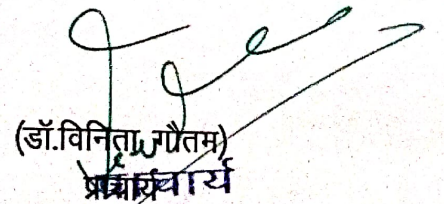 (डॉ.विनिता गौतम)
प्राचार्य